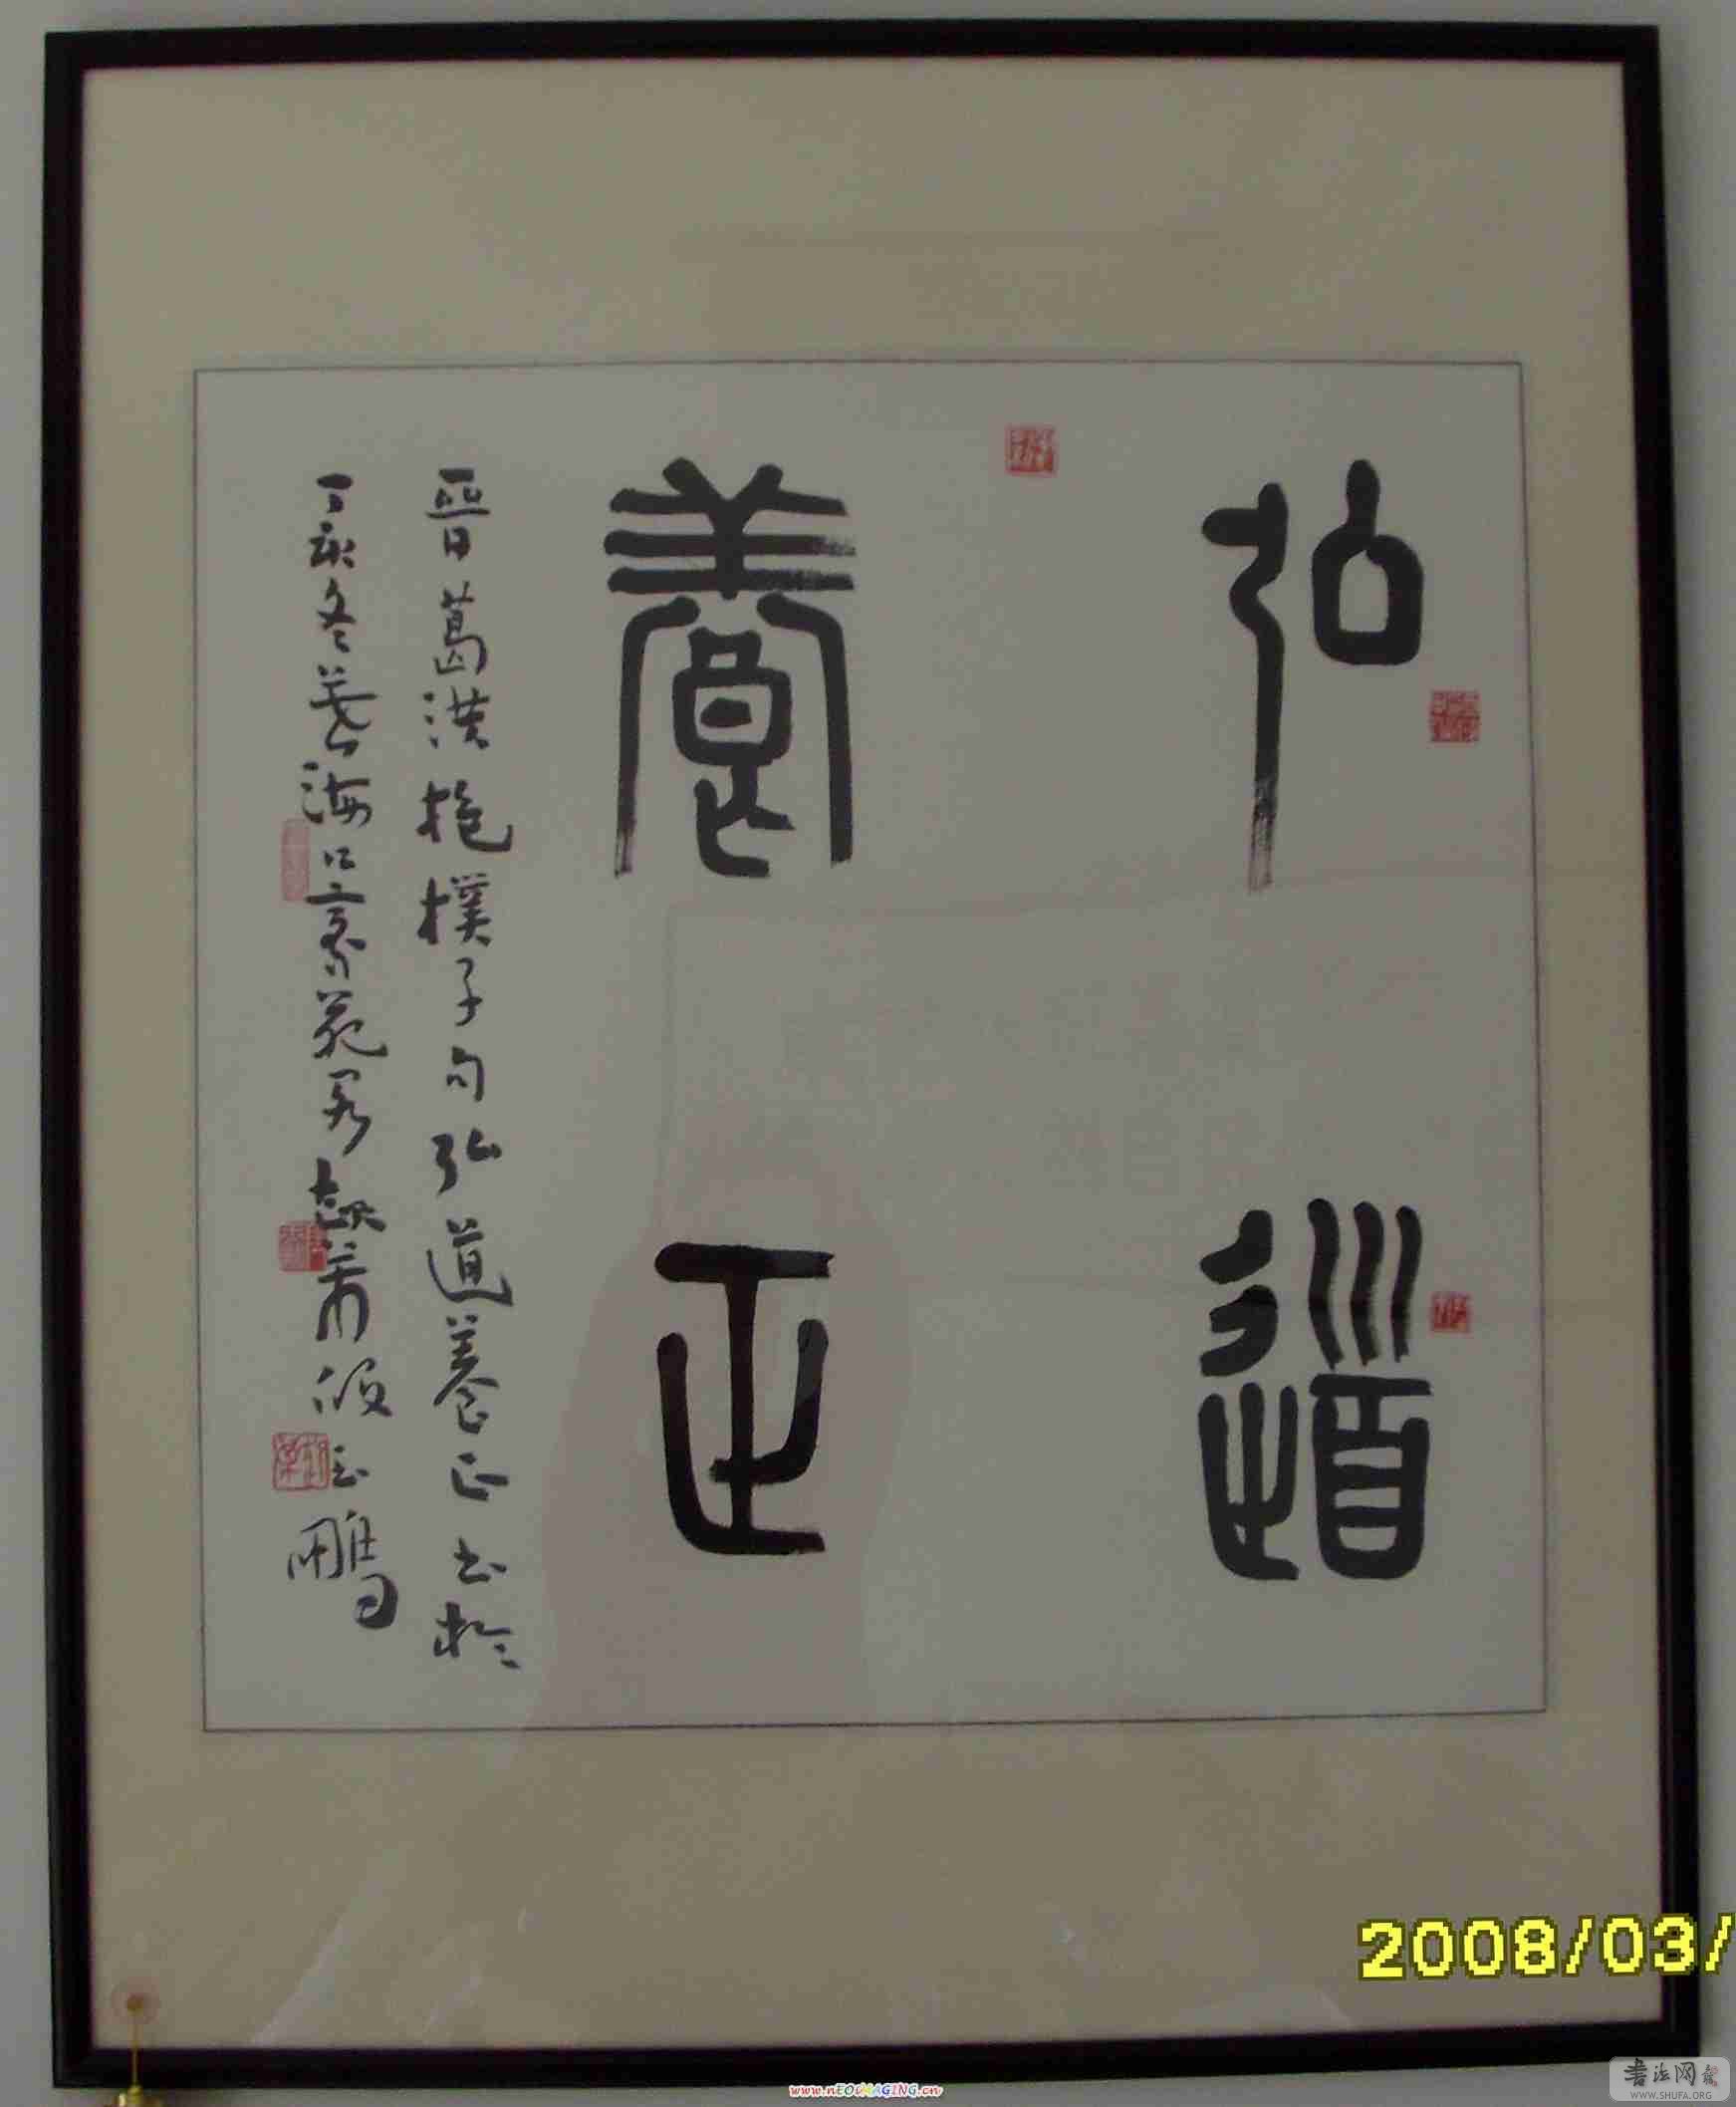 弘道
養正
晉葛洪抱樸子句弘道養正书於
丁亥冬暮海口景苑
鹏
2008/03/
www.nEOiMAGING.cn
书法网
WWW.SHUFA.ORG